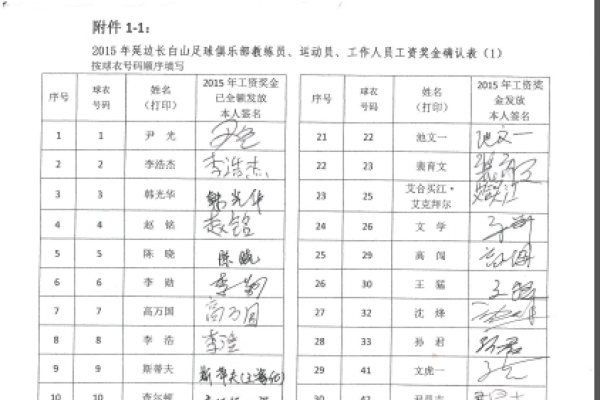 附件 1-1：
2015 年延边长白山足球俱乐部教练员、运动员、工作人员工资奖金确认表（1）
按球衣号码顺序填写
序号 球衣号码 姓名（打印） 2015 年工资奖金已全额发放本人签名
1 1 尹 光 尹光
2 2 李浩杰 李浩杰
3 3 韩光华 韩光华
4 4 赵 铭 赵铭
5 5 陈 晓 陈晓
6 6 李 勋 李勋
7 7 高万国 高万国
8 8 李 浩 李浩
9 9 斯蒂夫 斯蒂夫
10 10 查尔顿
序号 球衣号码 姓名（打印） 2015 年工资奖金发放本人签名
21 22 池文一 池文一
22 23 裴育文 裴育文
23 25 艾合买江·艾克拜尔
24 26 文 学
25 29 高 闯
26 30 王 猛 王猛
27 32 沈 烽
28 33 孙 君 孙君
29 41 文虎一
30 42 尹昌吉